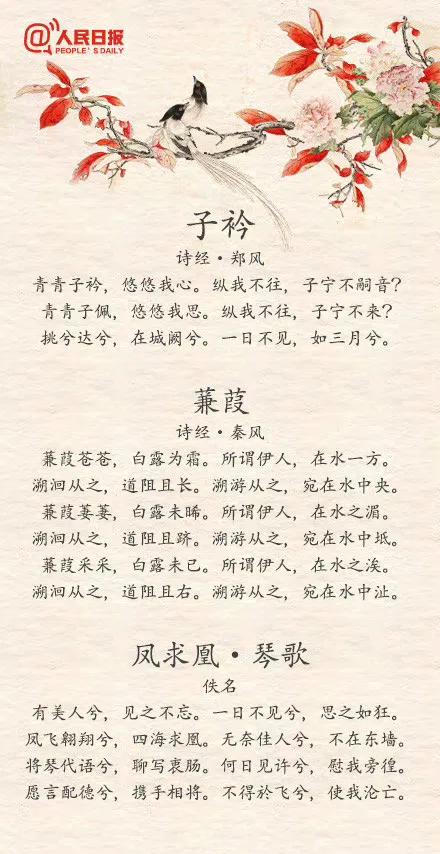 @人民日报
PEOPLE'S DAILY
子衿
诗经·郑风
青青子衿，悠悠我心。纵我不往，子宁不嗣音？
青青子佩，悠悠我思。纵我不往，子宁不来？
挑兮达兮，在城阙兮。一日不见，如三月兮。
蒹葭
诗经·秦风
蒹葭苍苍，白露为霜。所谓伊人，在水一方。
溯洄从之，道阻且长。溯游从之，宛在水中央。
蒹葭萋萋，白露未晞。所谓伊人，在水之湄。
溯洄从之，道阻且跻。溯游从之，宛在水中坻。
蒹葭采采，白露未已。所谓伊人，在水之涘。
溯洄从之，道阻且右。溯游从之，宛在水中沚。
凤求凰·琴歌
佚名
有美人兮，见之不忘。一日不见兮，思之如狂。
凤飞翱翔兮，四海求凰。无奈佳人兮，不在东墙。
将琴代语兮，聊写衷肠。何日见许兮，慰我旁徨。
愿言配德兮，携手相将。不得於飞兮，使我沦亡。